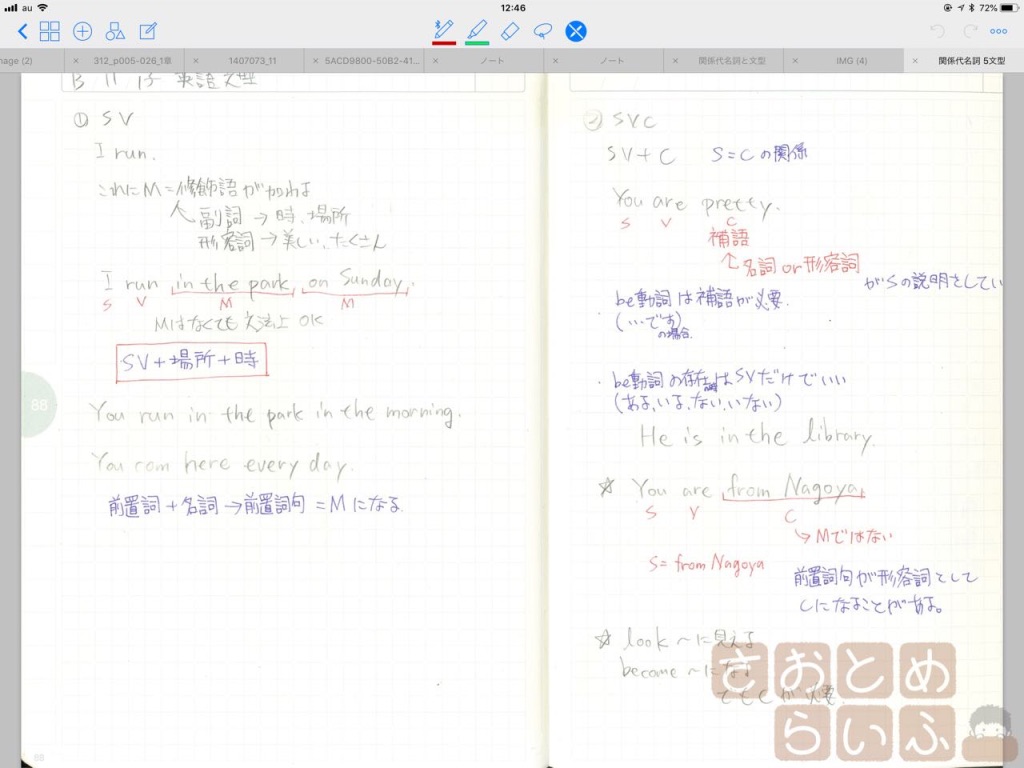 au 12:46 72%
nage (2)
312_p005-026_1章
1407073_11
5ACD9800-50B2-41...
ノート
ノート
関係代名詞と文型
IMG (4)
関係代名詞 5文型
英語文型
① SV
I run.
これにM=修飾語が加われば
副詞→時、場所
形容詞→美しい、たくさん
I run in the park on Sunday.
S V M M
Mはなくても文法上OK
SV+場所+時
88
You run in the park in the morning.
You com here every day.
前置詞+名詞→前置詞句=Mになる
88
② SVC
SV+C S=Cの関係
You are pretty.
S V C
補語
名詞or形容詞
がSの説明をしてい
・be動詞は補語が必要.
(…です)
の場合.
・be動詞の存在は SVだけでいい
(ある、いる、ない、いない)
He is in the library.
☆ You are from Nagoya.
S V C
Mではない
S=from Nagoya
前置詞句が形容詞として
Cになることがある。
☆ look ~に見える
become ~になる
でもCが必要
さおとめ
らいふ